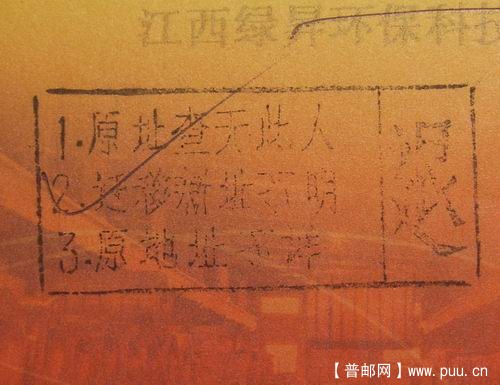 江西绿昇环保科技
1.原址查无此人
2.迁移新址不明
3.原地址不详
退
【普邮网】www.puu.cn